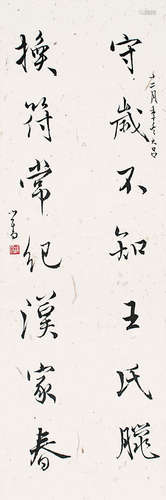 十二月
守歲不知王氏臘
換符常紀漢家春